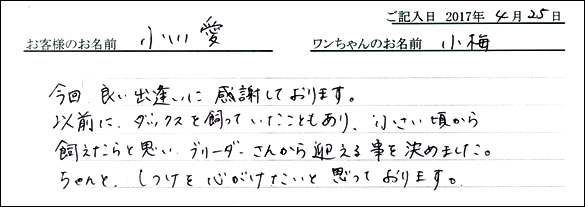 ご記入日 2017年 4月 25日
お客様のお名前 小川 愛 ワンちゃんのお名前 小梅
今回 良い出逢いに 感謝しております。
以前に、ダックスを飼っていたこともあり、小さい頃から
飼えたらと思い、ブリーダーさんから迎える事を決めました。
ちゃんと、しつけを心がけたいと思っております。